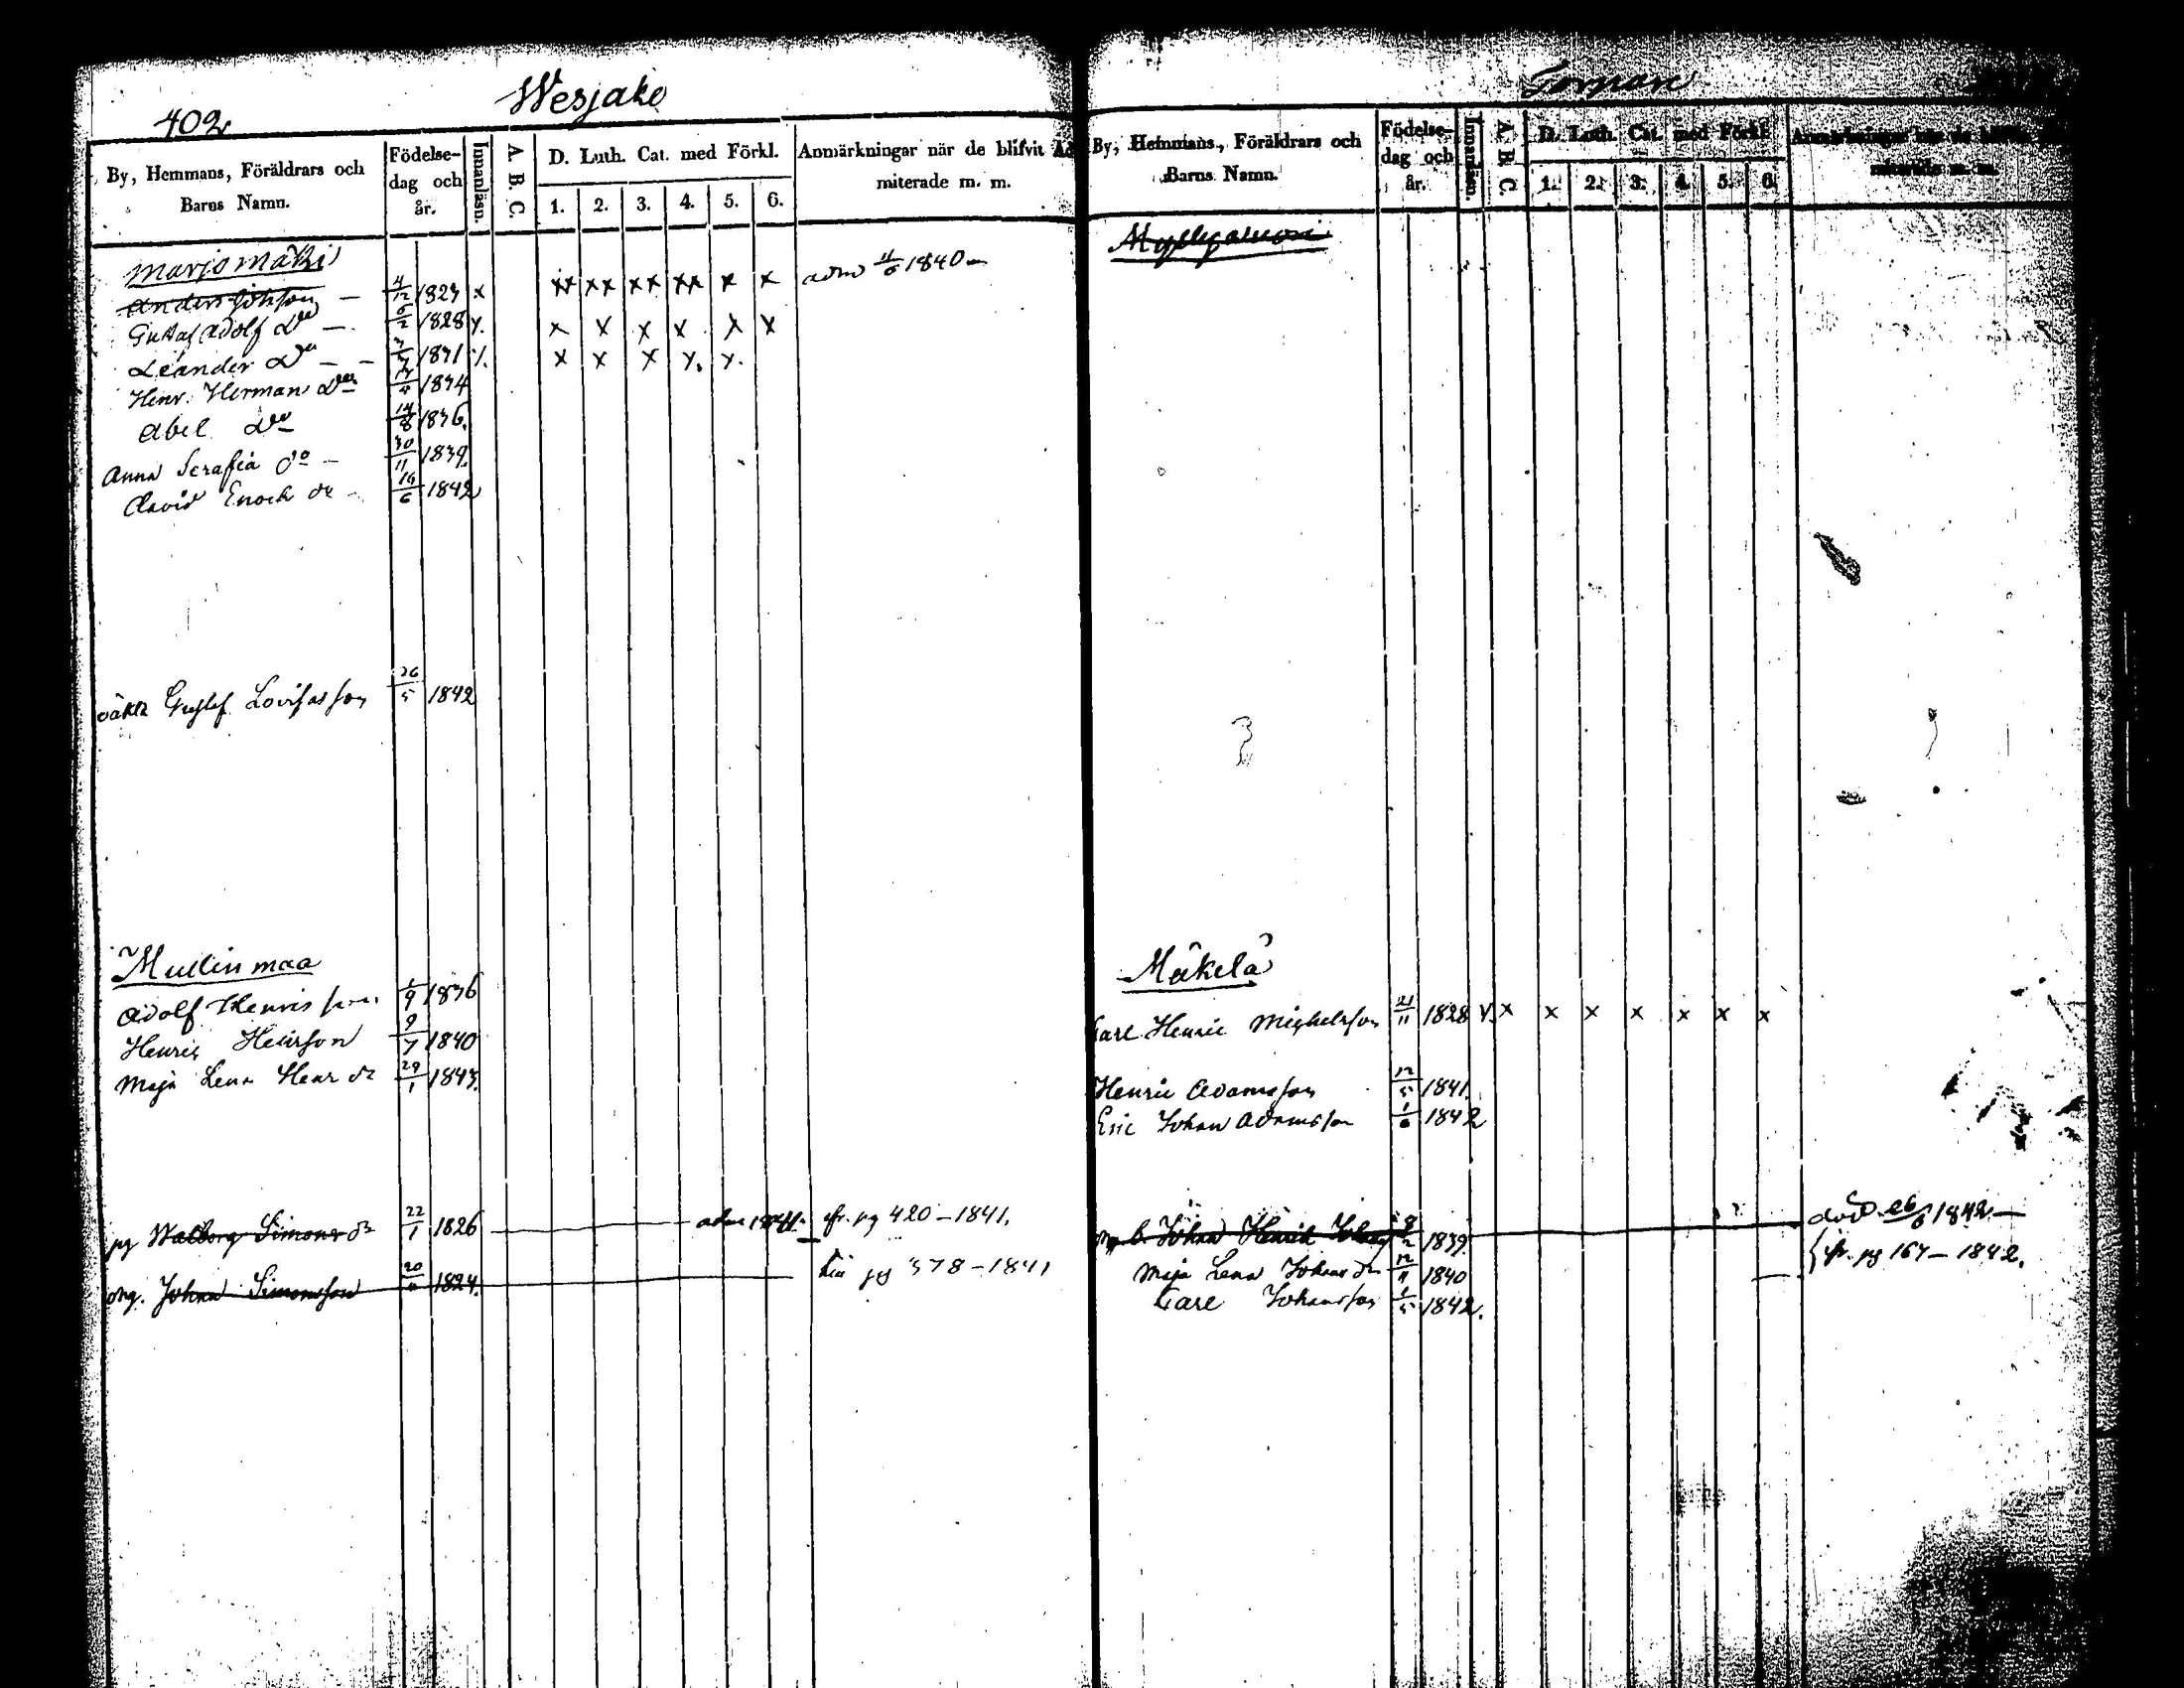 402
Wesjako
By, Hemmans, Föräldrars och Barns Namn.
Födelse-dag och år.
Innanläsn.
A. B. C.
D. Luth. Cat. med Förkl.
1. 2. 3. 4. 5. 6.
Anmärkningar när de blifvit Ad
miterade m. m.
Marjomäki
Anders Johsson — 4/12 1823 x xx xx xx xx x x adm 11/6 1840
Gustaf Adolf Do — 6/2 1828 x x x x x x x
Leander Do — 1831 x x x x x
Henr. Herman Do 1834
Abel Do 14/8 1836.
Anna Serafia do — 30/11 1839.
David Enoch do 19/6 1842
Gustaf Lovisasson 26/5 1842
Mullinmaa
Adolf Henrisson 1/9 1836
Henric Henrson 9/7 1840
Maja Lena Henr dr 29/1 1843.
pg Walborg Simons dr 22/1 1826 adm 1841. fr. pg 420 – 1841.
Johan Simonsson 20/11 1824. pg 378 – 1841
By, Hemmans, Föräldrars och
Barns Namn.
Födelse-dag och år.
Innanläsn.
A. B. C.
D. Luth. Cat. med Förkl.
1. 2. 3. 4. 5. 6.
Mäkelä
Carl Henric Michelsson 21/11 1828 x x x x x x x x
Henric Adamsson 12/5 1841.
Eric Johan Adamsson 1/6 1842
Johan Henrik 8/2 1839 död 26/6 1842. —
Maja Lena Johans dr 12/11 1840 fr. pg 167 – 1842.
Carl Johansson 1/5 1842.